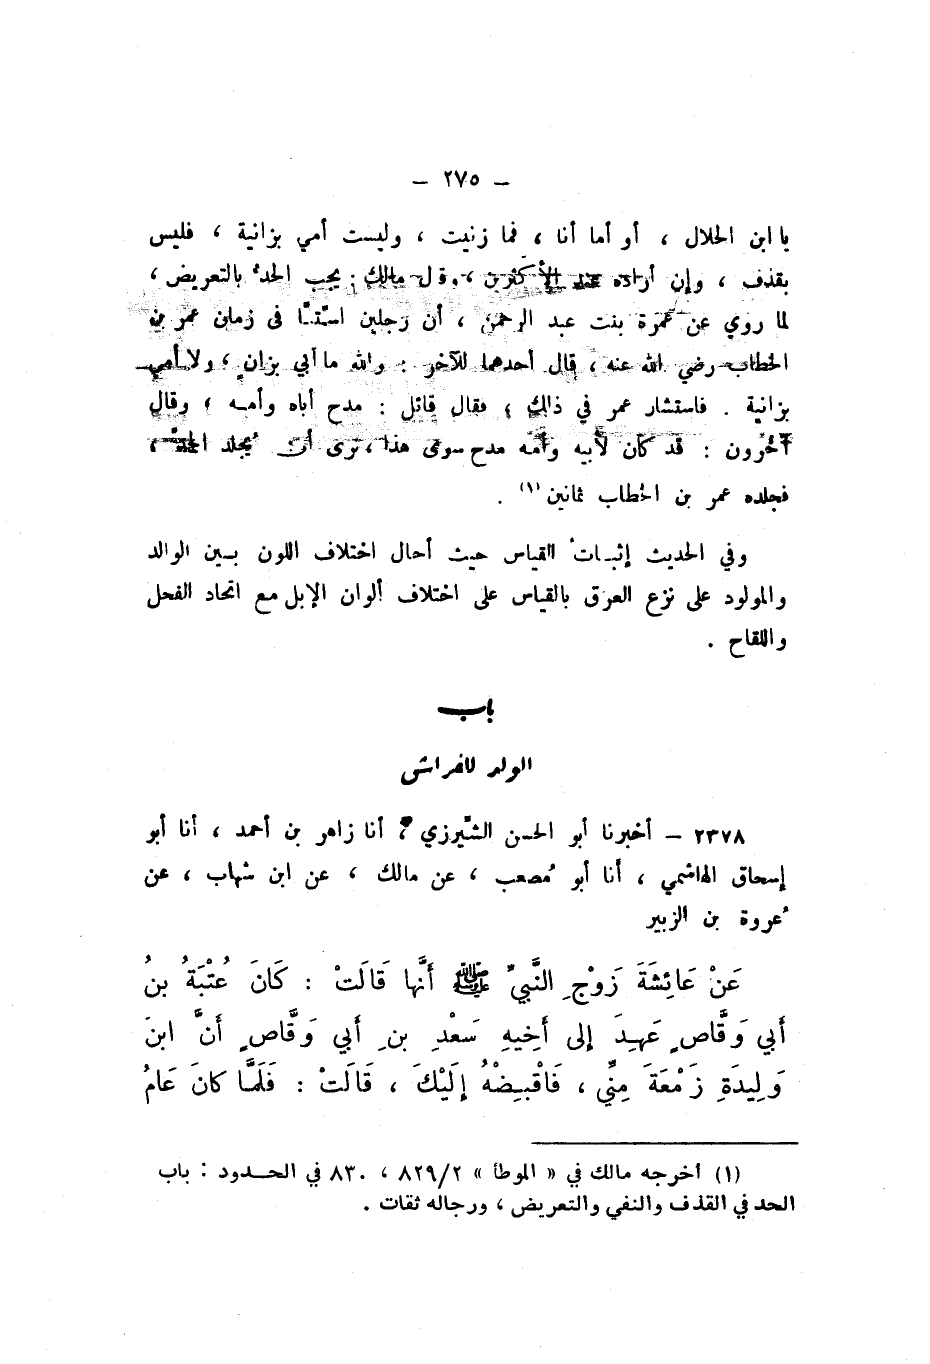 – ٢٧٥ –
يا ابن الحلال ، أو أما أنا ، فما زنيت ، وليست أمي بزانية ، فليس
بقذف ، وإن أراده عند الأكثرين ، وقال مالك : يجب الحدُّ بالتعريض ،
لما روي عن عَمرة بنت عبد الرحمن ، أن رجلين استبَّا في زمان عمر بن
الخطاب رضي الله عنه ، قال أحدهما للآخر : والله ما أبي بزانٍ ، ولا أمي
بزانية . فاستشار عمر في ذلك ، فقال قائل : مدح أباه وأمـه ، وقال
آخرون : قد كان لأبيه وأمه مدح سوى هذا ، نرى أن يُجلد الحدَّ ،
فجلده عمر بن الخطاب ثمانين (١) .
وفي الحديث إثبـات القياس حيث أحال اختلاف اللون بـين الوالد
والمولود على نزع العرق بالقياس على اختلاف ألوان الإبل مع اتحاد الفحل
واللقاح .
باب
الولد للفراش
٢٣٧٨ – أخبرنا أبو الحسن الشَّيرزي ، أنا زاهر بن أحمد ، أنا أبو
إسحاق الهاشمي ، أنا أبو مُصعب ، عن مالك ، عن ابن شهاب ، عن
عُروة بن الزبير
عَنْ عَائِشَةَ زَوْجِ النَّبِيِّ ﷺ أَنَّها قَالَتْ : كَانَ عُتْبَةُ بنُ
أَبي وَقَّاصٍ عَهِـدَ إلى أَخِيهِ سَعْدِ بنِ أَبي وَقَّاصٍ أَنَّ ابنَ
وَلِيدَةِ زَمْعَةَ مِنِّي ، فَاقْبِـضْهُ إلَيْكَ ، قَالَتْ : فَلَمَّا كانَ عَامُ
(١) أخرجه مالك في « الموطأ » ٨٢٩/٢ ، ٨٣٠ في الحـدود : باب
الحد في القذف والنفي والتعريض ، ورجاله ثقات .